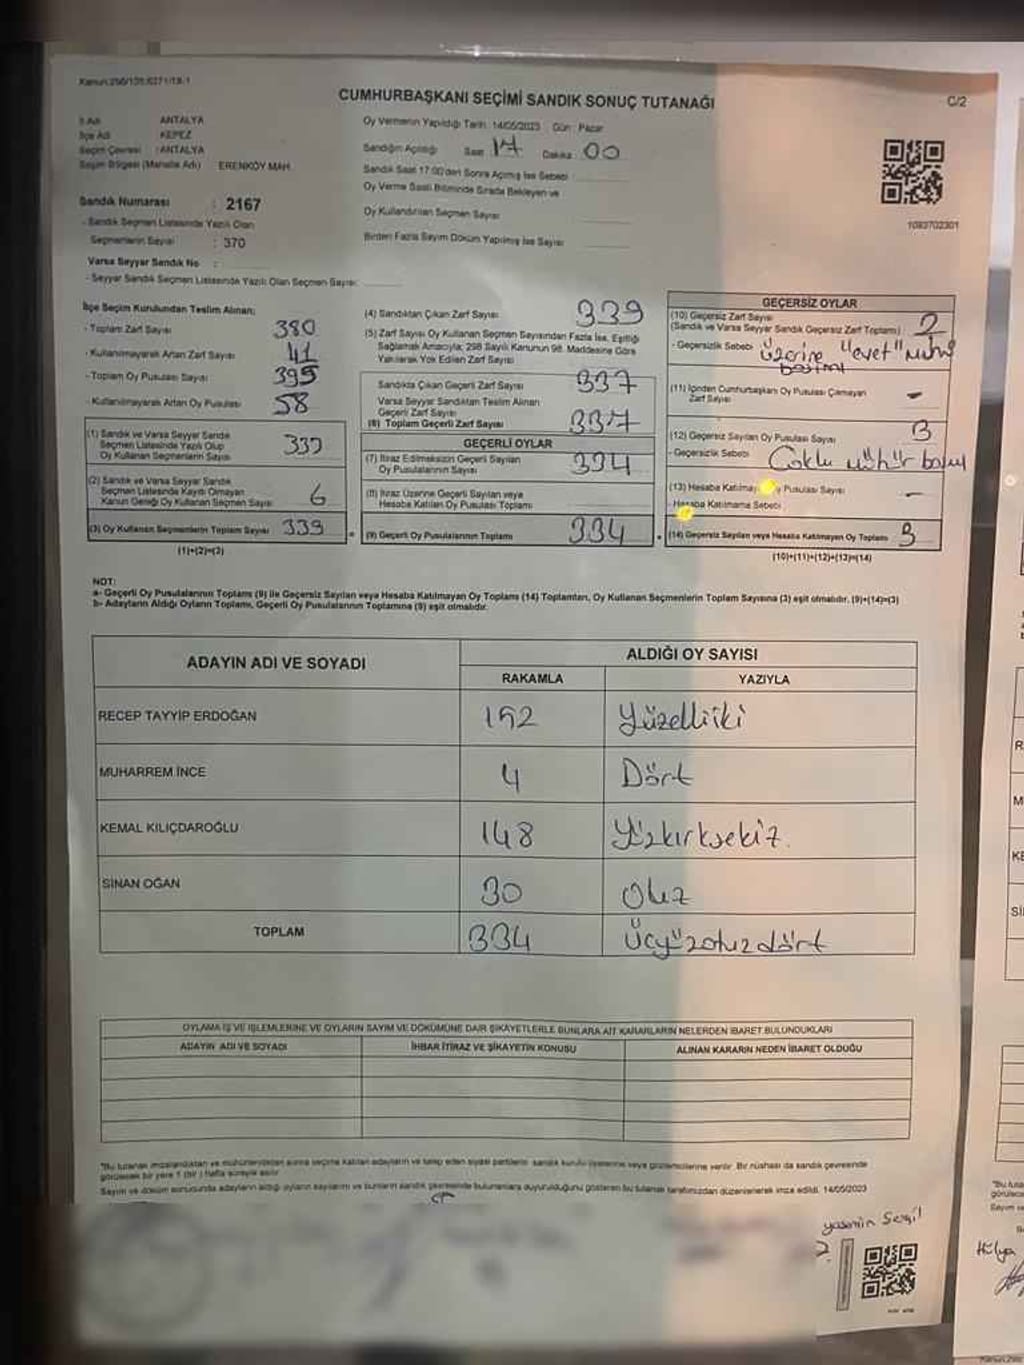 Kanun:298/135;6271/18-1
CUMHURBAŞKANI SEÇİMİ SANDIK SONUÇ TUTANAĞI
C/2
İl Adı ANTALYA
İlçe Adı KEPEZ
Seçim Çevresi : ANTALYA
Seçim Bölgesi (Mahalle Adı) ERENKÖY MAH.
Sandık Numarası : 2167
- Sandık Seçmen Listesinde Yazılı Olan
Seçmenlerin Sayısı : 370
Varsa Seyyar Sandık No :
- Seyyar Sandık Seçmen Listesinde Yazılı Olan Seçmen Sayısı:
Oy Vermenin Yapıldığı Tarih: 14/05/2023 Gün : Pazar
Sandığın Açıldığı Saat 17 Dakika 00
Sandık Saat 17:00'den Sonra Açılmış İse Sebebi :
Oy Verme Saati Bitiminde Sırada Bekleyen ve
Oy Kullandırılan Seçmen Sayısı
Birden Fazla Sayım Döküm Yapılmış İse Sayısı
1093702301
İlçe Seçim Kurulundan Teslim Alınan;
- Toplam Zarf Sayısı 380
- Kullanılmayarak Artan Zarf Sayısı 41
- Toplam Oy Pusulası Sayısı 395
- Kullanılmayarak Artan Oy Pusulası 58
(1) Sandık ve Varsa Seyyar Sandık
Seçmen Listesinde Yazılı Olup
Oy Kullanan Seçmenlerin Sayısı 333
(2) Sandık ve Varsa Seyyar Sandık
Seçmen Listesinde Kaydı Olmayan
Kanun Gereği Oy Kullanan Seçmen Sayısı 6
(3) Oy Kullanan Seçmenlerin Toplam Sayısı 339
(1)+(2)=(3)
(4) Sandıktan Çıkan Zarf Sayısı 339
(5) Zarf Sayısı Oy Kullanan Seçmen Sayısından Fazla İse, Eşitliği
Sağlamak Amacıyla; 298 Sayılı Kanunun 98. Maddesine Göre
Yakılarak Yok Edilen Zarf Sayısı
Sandıkta Çıkan Geçerli Zarf Sayısı 337
Varsa Seyyar Sandıktan Teslim Alınan
Geçerli Zarf Sayısı
(6) Toplam Geçerli Zarf Sayısı 337
GEÇERLİ OYLAR
(7) İtiraz Edilmeksizin Geçerli Sayılan
Oy Pusulalarının Sayısı 334
(8) İtiraz Üzerine Geçerli Sayılan veya
Hesaba Katılan Oy Pusulası Toplamı
(9) Geçerli Oy Pusulalarının Toplamı 334
GEÇERSİZ OYLAR
(10) Geçersiz Zarf Sayısı
(Sandık ve Varsa Seyyar Sandık Geçersiz Zarf Toplamı) 2
- Geçersizlik Sebebi üzerine "evet" mührü
basımı
(11) İçinden Cumhurbaşkanı Oy Pusulası Çıkmayan
Zarf Sayısı -
(12) Geçersiz Sayılan Oy Pusulası Sayısı 3
- Geçersizlik Sebebi Çoklu mühür basımı
(13) Hesaba Pusulası Sayısı -
- Hesaba Katılmama Sebebi
(14) Geçersiz Sayılan veya Hesaba Katılmayan Oy Toplamı 3
(10)+(11)+(12)+(13)=(14)
NOT:
a- Geçerli Oy Pusulalarının Toplamı (9) ile Geçersiz Sayılan veya Hesaba Katılmayan Oy Toplamı (14) Toplamları, Oy Kullanan Seçmenlerin Toplam Sayısına (3) eşit olmalıdır. (9)+(14)=(3)
b- Adayların Aldığı Oyların Toplamı, Geçerli Oy Pusulalarının Toplamına (9) eşit olmalıdır.
ADAYIN ADI VE SOYADI
ALDIĞI OY SAYISI
RAKAMLA YAZIYLA
RECEP TAYYİP ERDOĞAN 152 Yüzelliiki
MUHARREM İNCE 4 Dört
KEMAL KILIÇDAROĞLU 148 Yüzkırksekiz
SİNAN OĞAN 30 Otuz
TOPLAM 334 Üçyüzotuzdört
OYLAMA İŞ VE İŞLEMLERİNE VE OYLARIN SAYIM VE DÖKÜMÜNE DAİR ŞİKAYETLERLE BUNLARA AİT KARARLARIN NELERDEN İBARET BULUNDUKLARI
ADAYIN ADI VE SOYADI İHBAR İTİRAZ VE ŞİKAYETİN KONUSU ALINAN KARARIN NEDEN İBARET OLDUĞU
"Bu tutanak imzalandıktan ve mühürlendikten sonra seçime katılan adayların ve talep eden siyasi partilerin sandık kurulu üyelerine veya gözlemcilerine verilir. Bir nüshası da sandık çevresinde
görülecek bir yere 1 (bir ) hafta süreyle asılır.
Sayım ve döküm sonucunda adayların aldığı oyların sayılarını ve bunların sandık çevresinde bulunanlara duyurulduğunu gösteren bu tutanak tarafımızdan düzenlenerek imza edildi. 14/05/2023
yasemin Sergil
Hülya